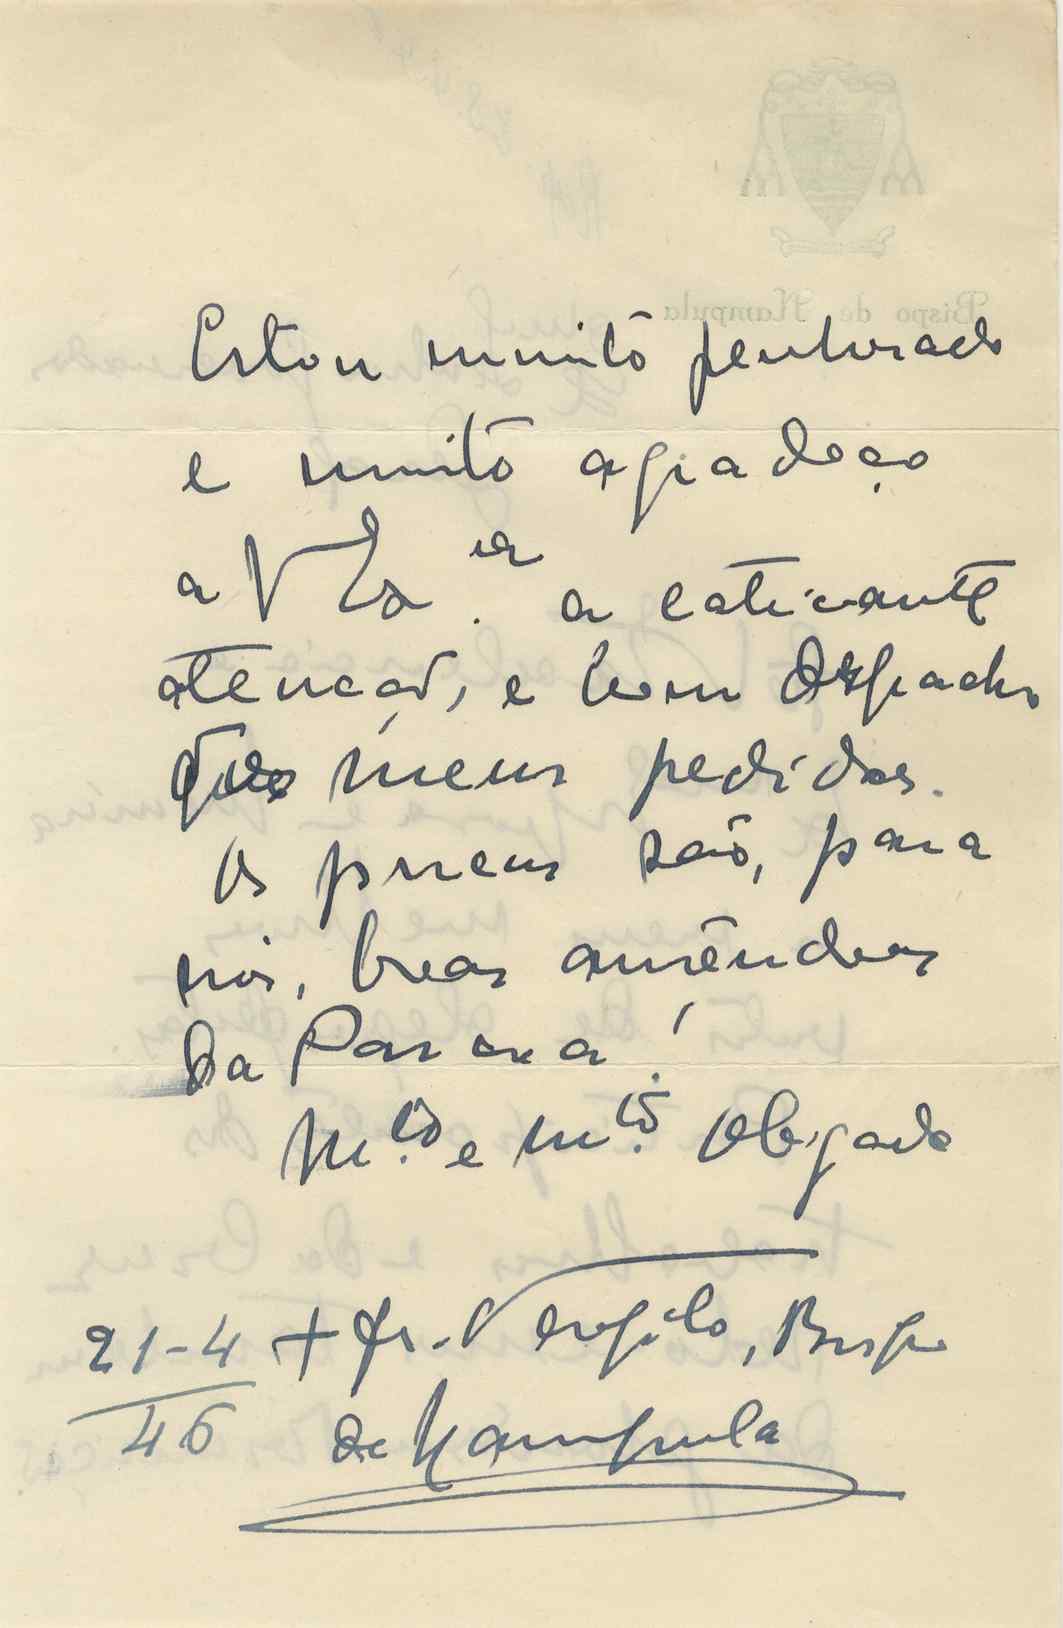 Estou muito penhorado
e muito agradeço
a V Exª. a cativante
atenção, e bom despacho
dos meus pedidos.
Os pneus são, para
nós, boas amêndoas
da Pascoa!
M.to e m.to Obgado
21-4 + fr. Vergilo, Bispo
46 de Nampula
Bispo de Nampula